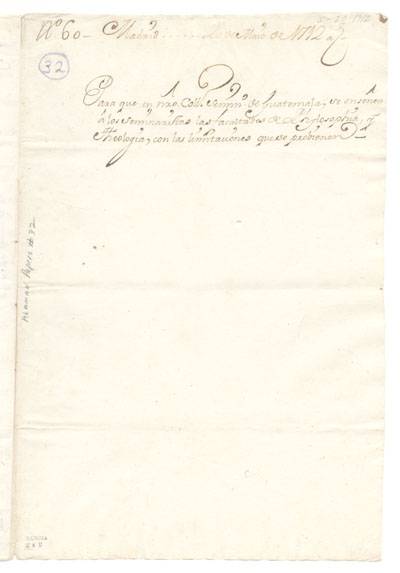 Nº 60 — Madrid ...... de Mayo de 1712 aſ
32
Para que en nro. Coll. Semin.º de Guatemala, se enseñen
à los seminaristas las facultades de Phylosophia, y
Theologia, con las limitaciones que se previenen
Alaman Papers # 32
GARCIA